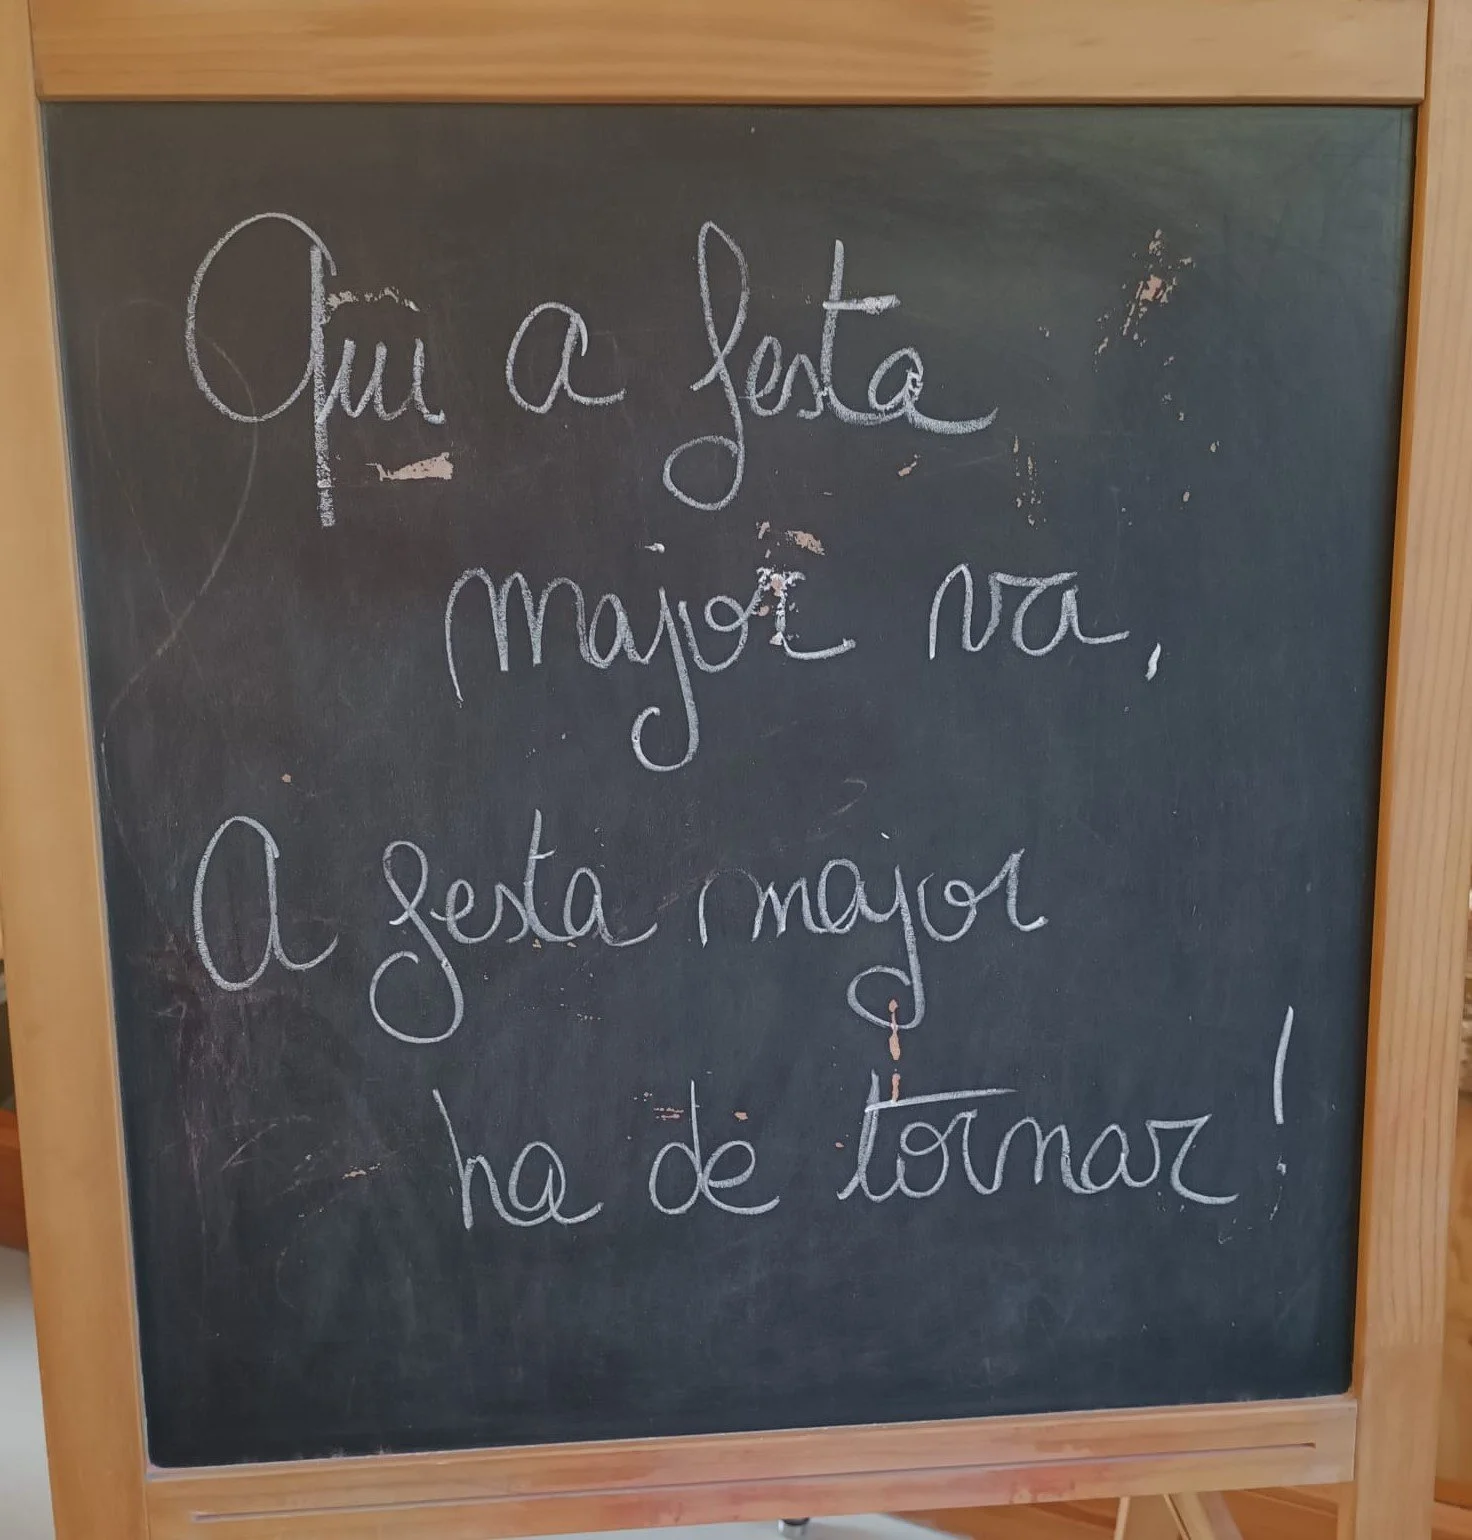 Qui a festa
major va,
A festa major
ha de tornar!